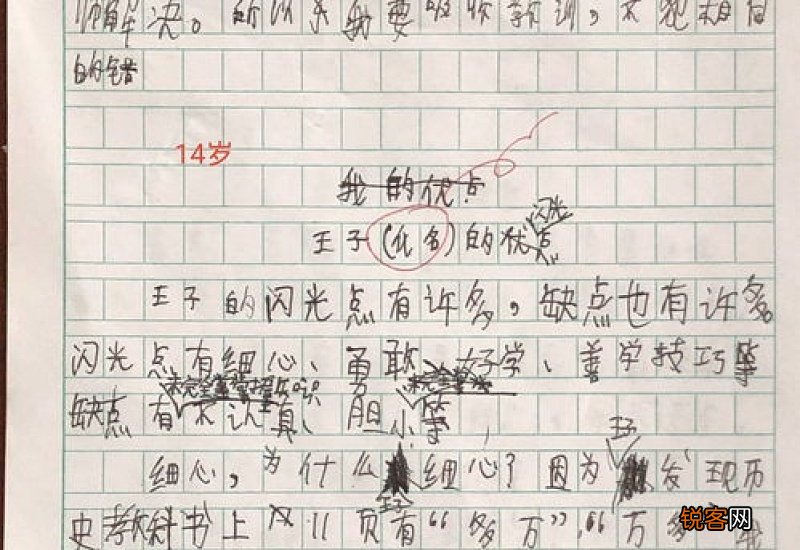 解决。所以我要吸收教训,不犯相同
的错
14岁
我的优点
闪光
王子(化名)的优点
王子的闪光点有许多,缺点也有许多。
闪光点有细心、勇敢、好学、善学技巧等
缺点有不认真、胆小等,
王子
细心,为什么细心?因为发现历
王子
史教科书上 11页有“多万”,“万多
锐客网